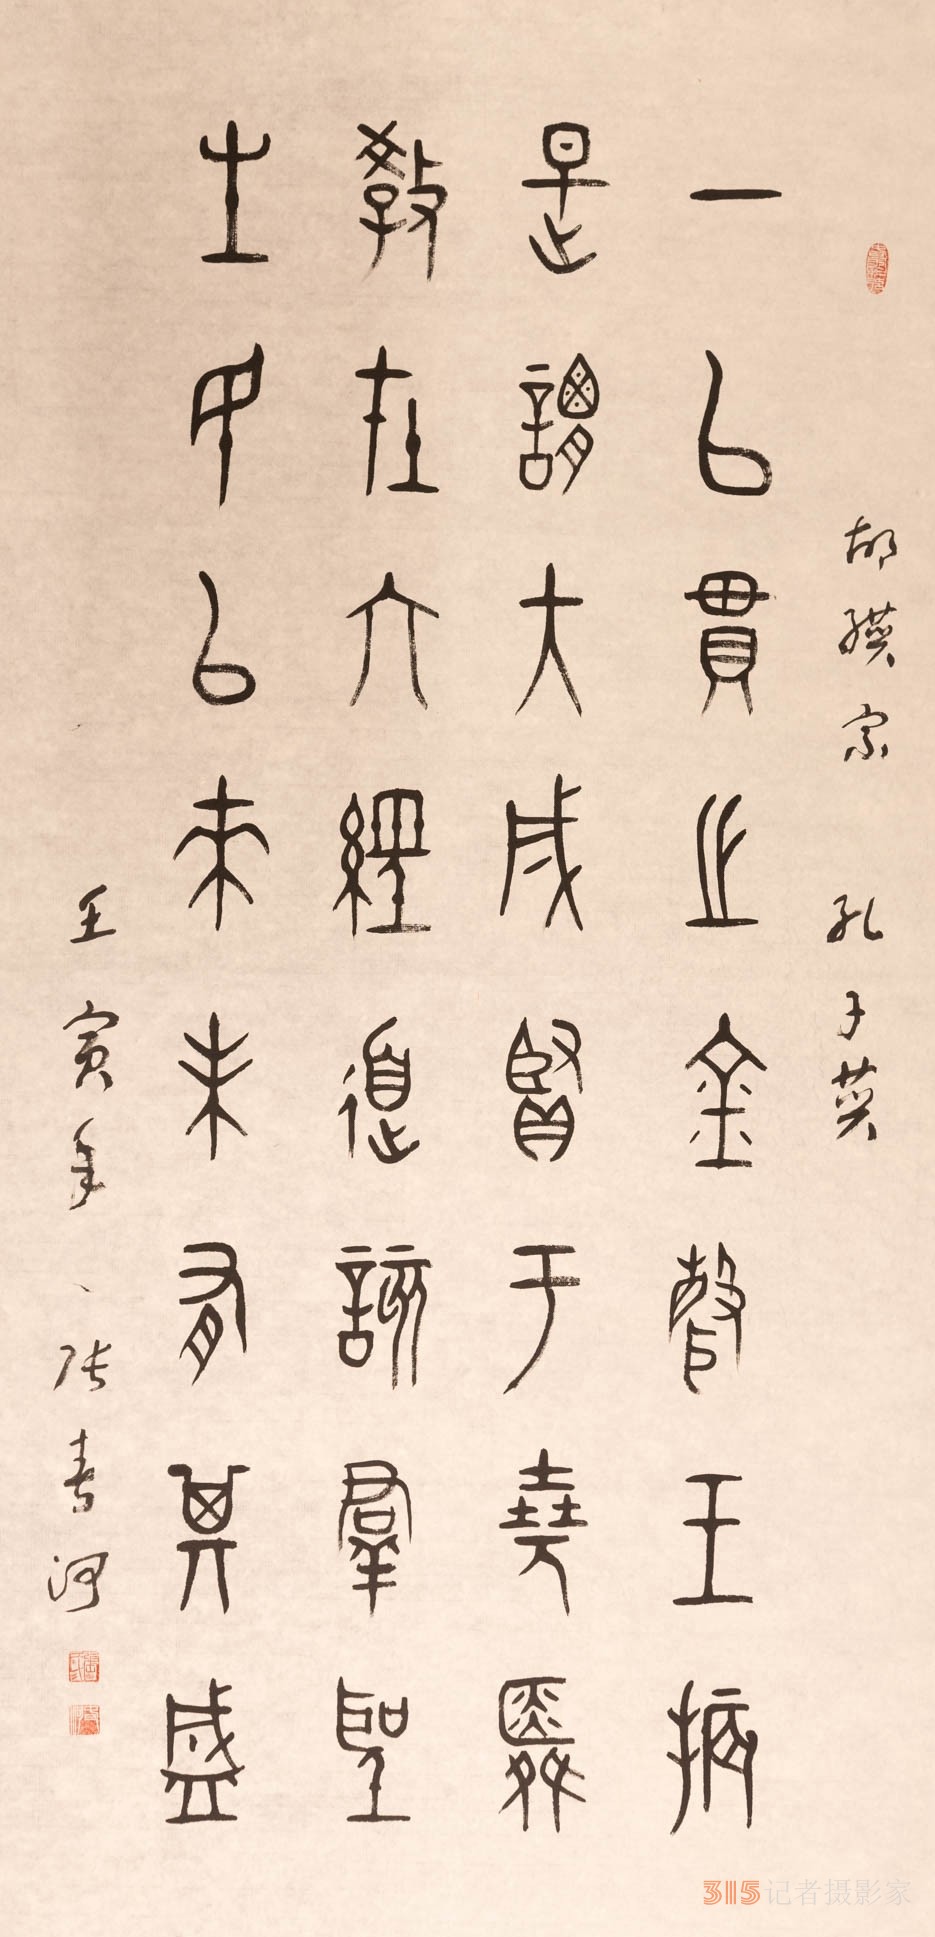 胡缵宗 孔子赞
一以貫之金聲玉振
是謂大成賢于堯舜
教在六經道諦羣聖
生民以來未有其盛
壬寅年 张 河
315记者摄影家